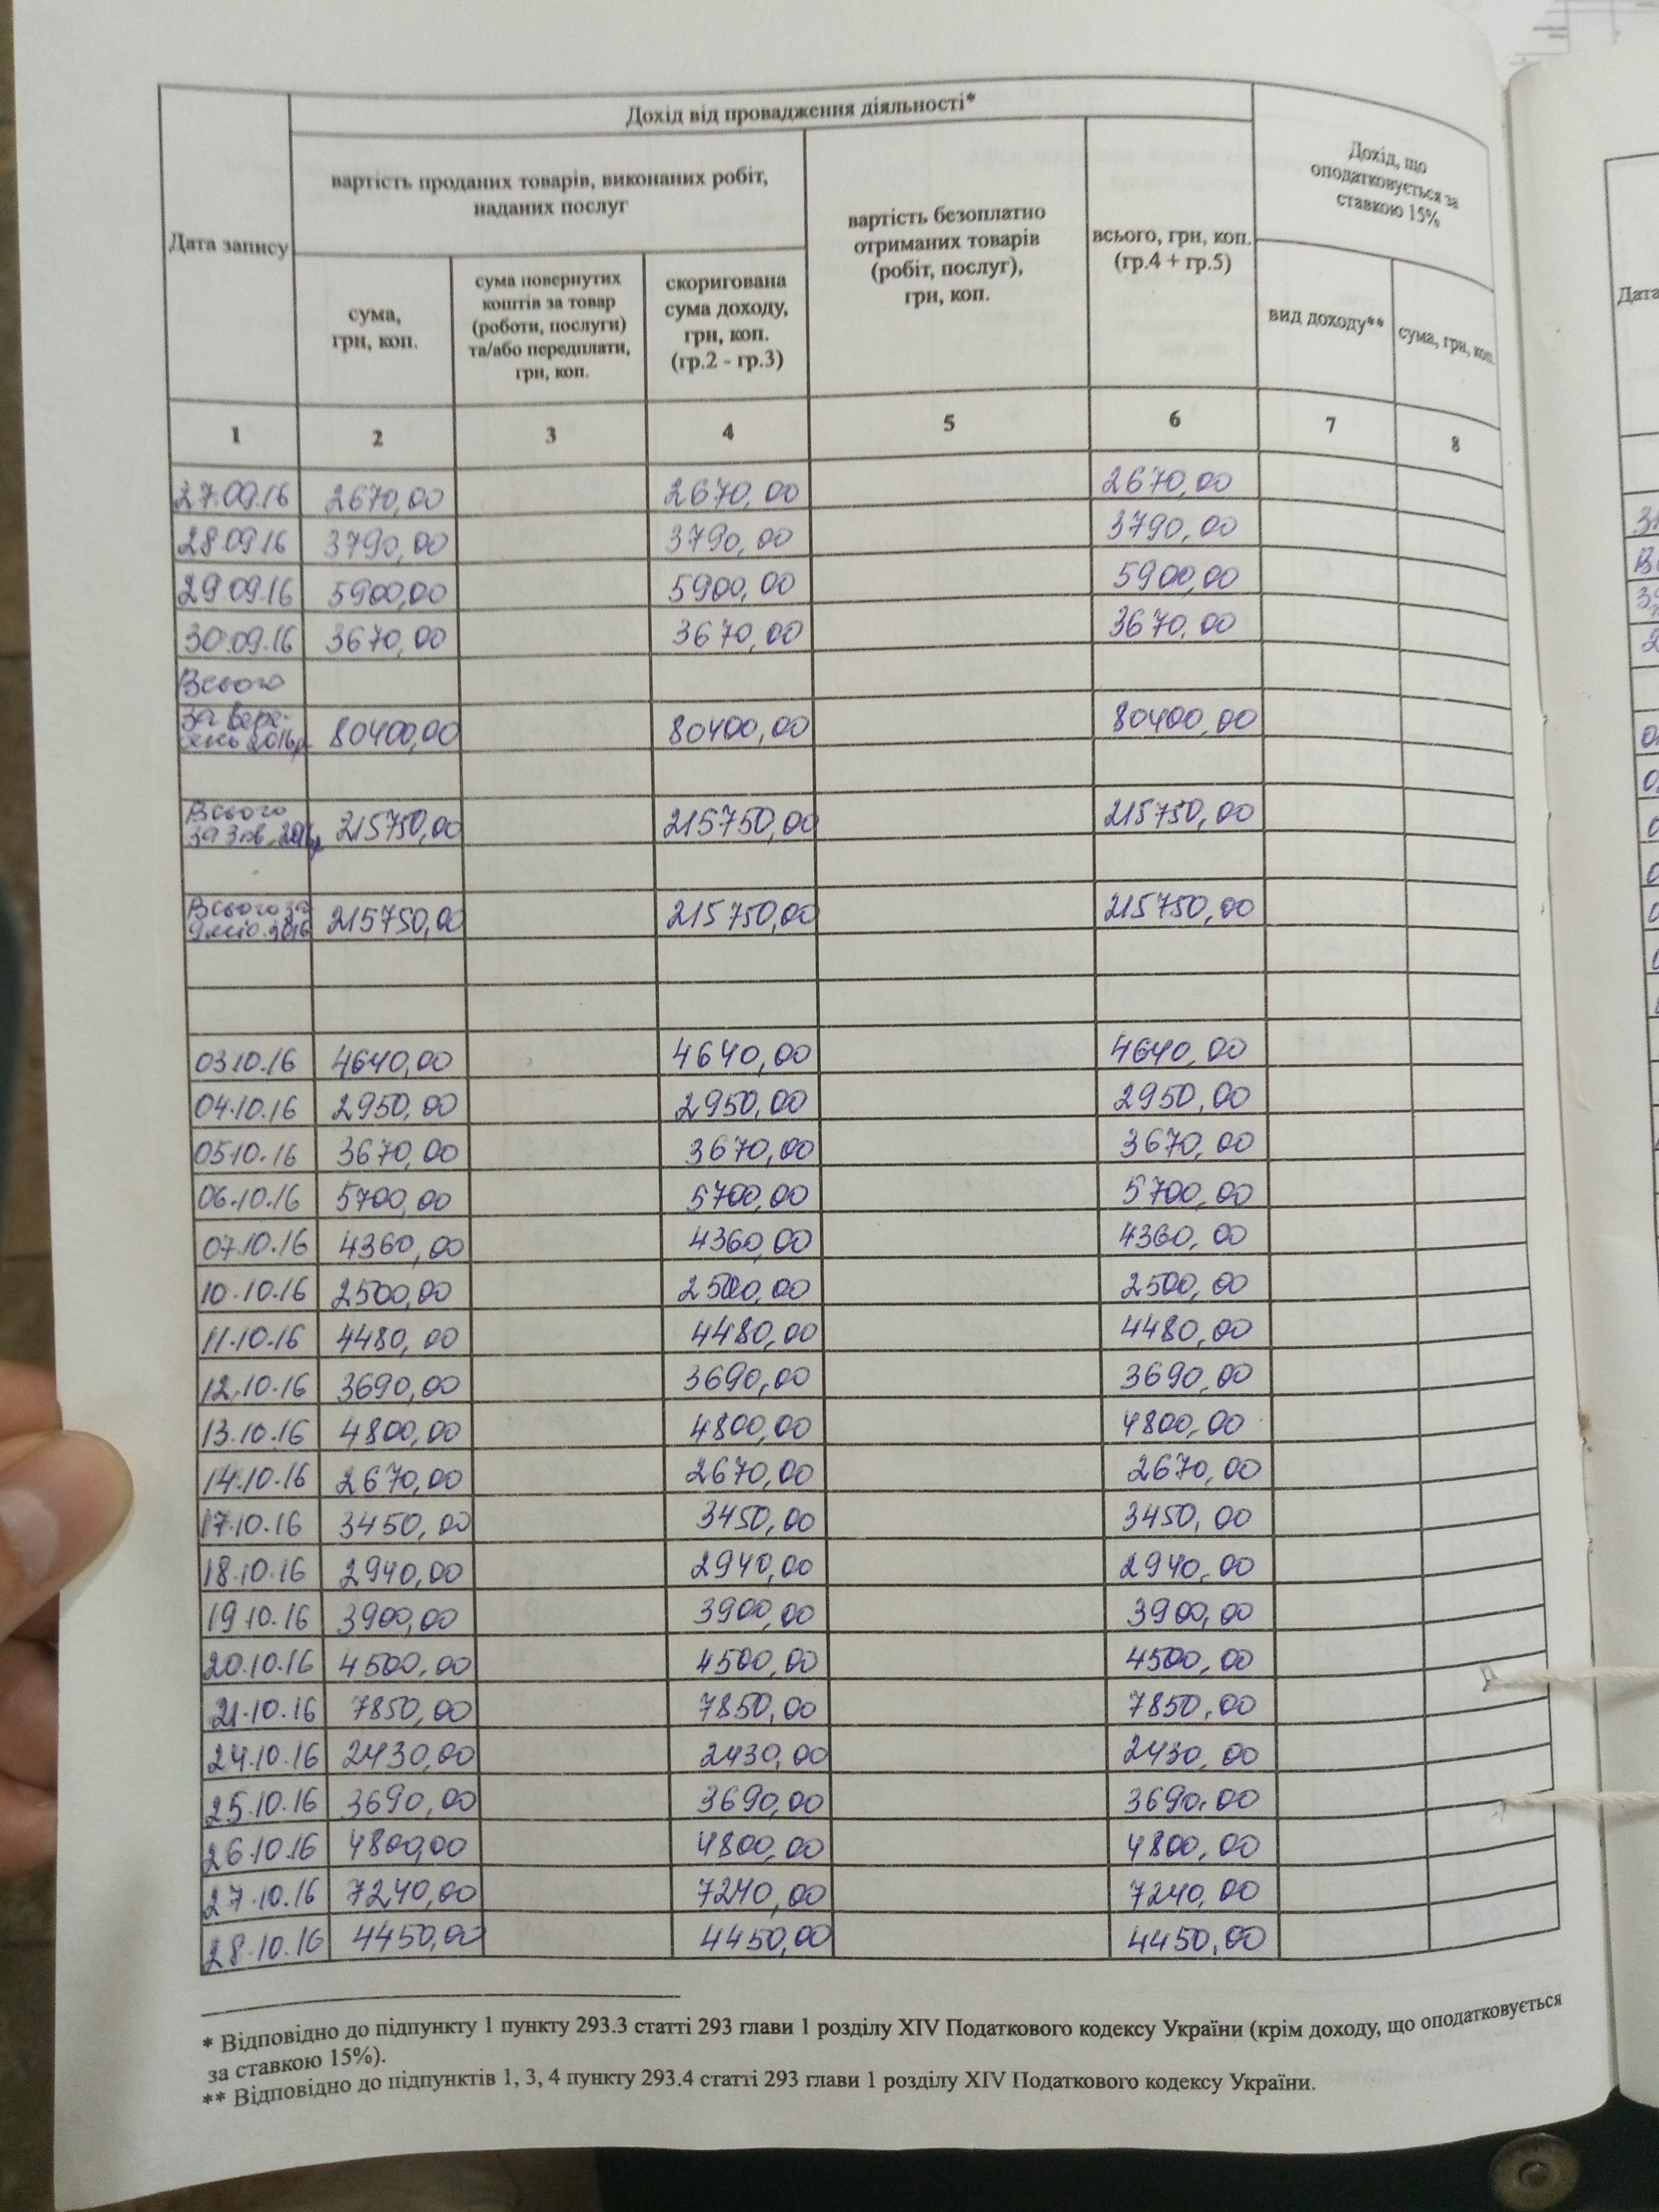 Дохід від провадження діяльності*
Дата запису
вартість проданих товарів, виконаних робіт,
наданих послуг
сума,
грн, коп.
сума повернутих
коштів за товар
(роботи, послуги)
та/або передплати,
грн, коп.
скоригована
сума доходу,
грн, коп.
(гр.2 - гр.3)
вартість безоплатно
отриманих товарів
(робіт, послуг),
грн, коп.
всього, грн, коп.
(гр.4 + гр.5)
Дохід, що
оподатковується за
ставкою 15%
вид доходу**
сума, грн, коп.
1 2 3 4 5 6 7 8
27.09.16 2670,00 2670,00 2670,00
28.09.16 3790,00 3790,00 3790,00
29.09.16 5900,00 5900,00 5900,00
30.09.16 3670,00 3670,00 3670,00
Всього
за вере-
сень 2016р. 80400,00 80400,00 80400,00
Всього
за 3 кв. 2016р 215750,00 215750,00 215750,00
Всього за
9 міс. 2016 215750,00 215750,00 215750,00
03.10.16 4640,00 4640,00 4640,00
04.10.16 2950,00 2950,00 2950,00
05.10.16 3670,00 3670,00 3670,00
06.10.16 5700,00 5700,00 5700,00
07.10.16 4360,00 4360,00 4360,00
10.10.16 2500,00 2500,00 2500,00
11.10.16 4480,00 4480,00 4480,00
12.10.16 3690,00 3690,00 3690,00
13.10.16 4800,00 4800,00 4800,00
14.10.16 2670,00 2670,00 2670,00
17.10.16 3450,00 3450,00 3450,00
18.10.16 2940,00 2940,00 2940,00
19.10.16 3900,00 3900,00 3900,00
20.10.16 4500,00 4500,00 4500,00
21.10.16 7850,00 7850,00 7850,00
24.10.16 2430,00 2430,00 2430,00
25.10.16 3690,00 3690,00 3690,00
26.10.16 4800,00 4800,00 4800,00
27.10.16 7240,00 7240,00 7240,00
28.10.16 4450,00 4450,00 4450,00
* Відповідно до підпункту 1 пункту 293.3 статті 293 глави 1 розділу XIV Податкового кодексу України (крім доходу, що оподатковується
за ставкою 15%).
** Відповідно до підпунктів 1, 3, 4 пункту 293.4 статті 293 глави 1 розділу XIV Податкового кодексу України.
Дата